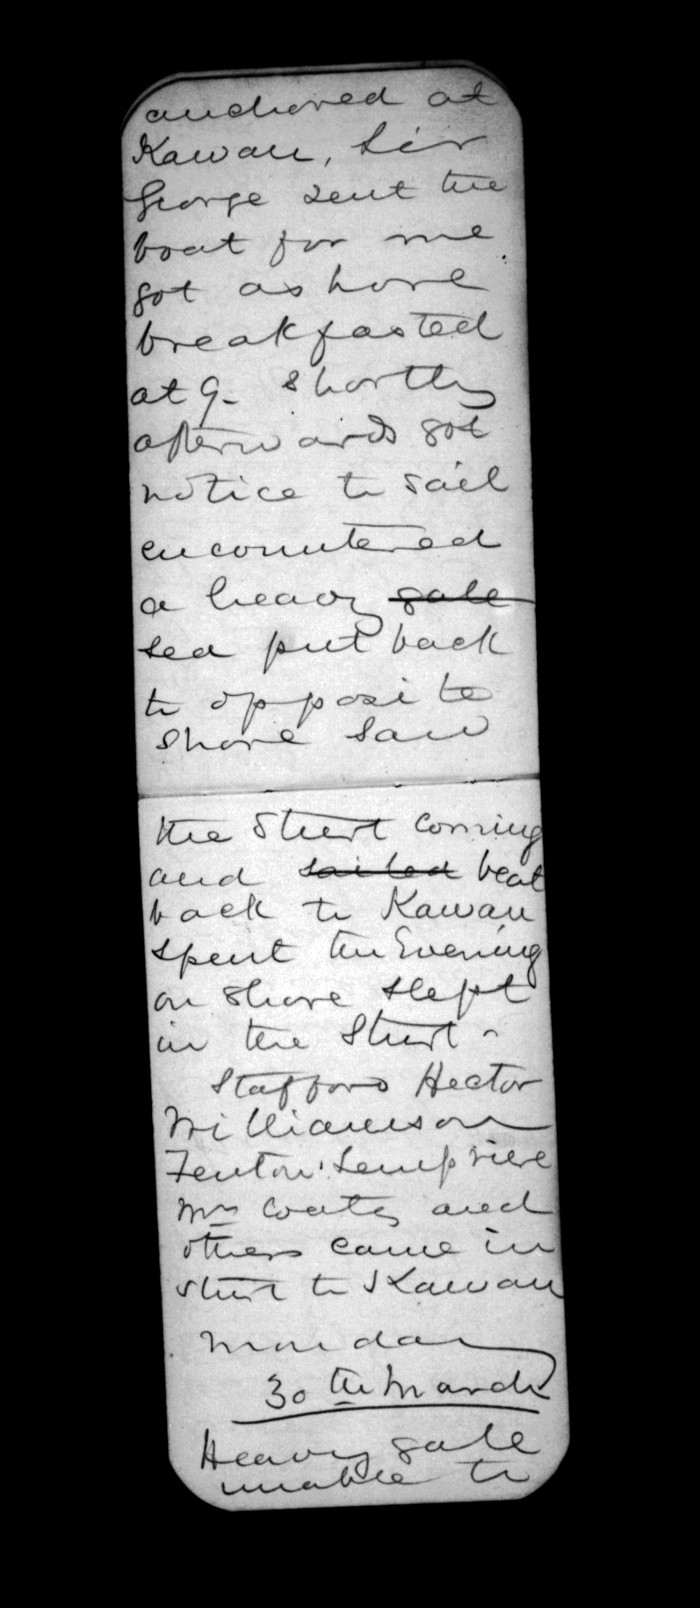 anchored at
Kawau, Sir
George sent the
boat for me
got ashore
breakfasted
at 9. Shortly
afterwards got
notice to sail
encountered
a heavy gale
sea put back
to opposite
shore saw
the Sturt coming
and sailed beat
back to Kawau
spent the Evening
on shore slept
in the Sturt -
Stafford Hector
Williamson
Fenton, Lempriere
Mrs Coates and
others came in
Sturt to Kawau
Monday
30th March
Heavy gale
unable to